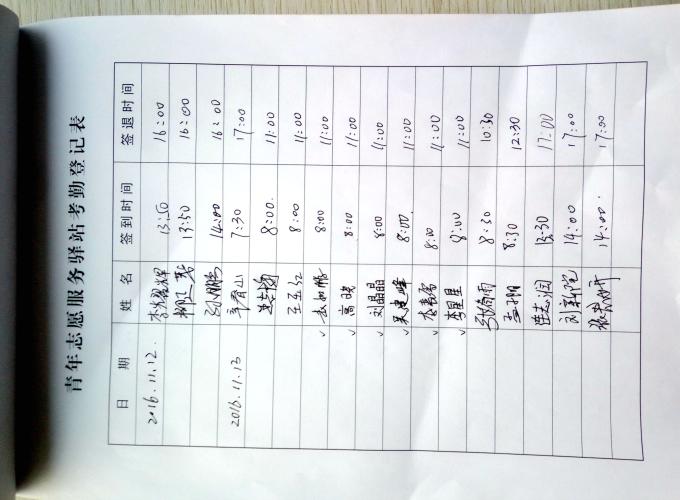 青年志愿服务驿站考勤登记表
日 期 姓 名 签到时间 签退时间
2016.11.12. 13:50 16:00
13:50 16:00
孙鹏 14:00 16:00
2016.11.13 辛春山 7:30 17:00
8:00. 11:00
王玉红 8:00 11:00
✓ 8:00 11:00
✓ 高晓 8:00 11:00
✓ 刘晶晶 8:00 11:00
✓ 吴建峰 8:00. 11:00
✓ 8:00 11:00
✓ 李星星 8:00 11:00
8:30 10:30
8:30 12:30
崔志润 13:30 17:00
刘新院 14:00 17:00
14:00. 17:00